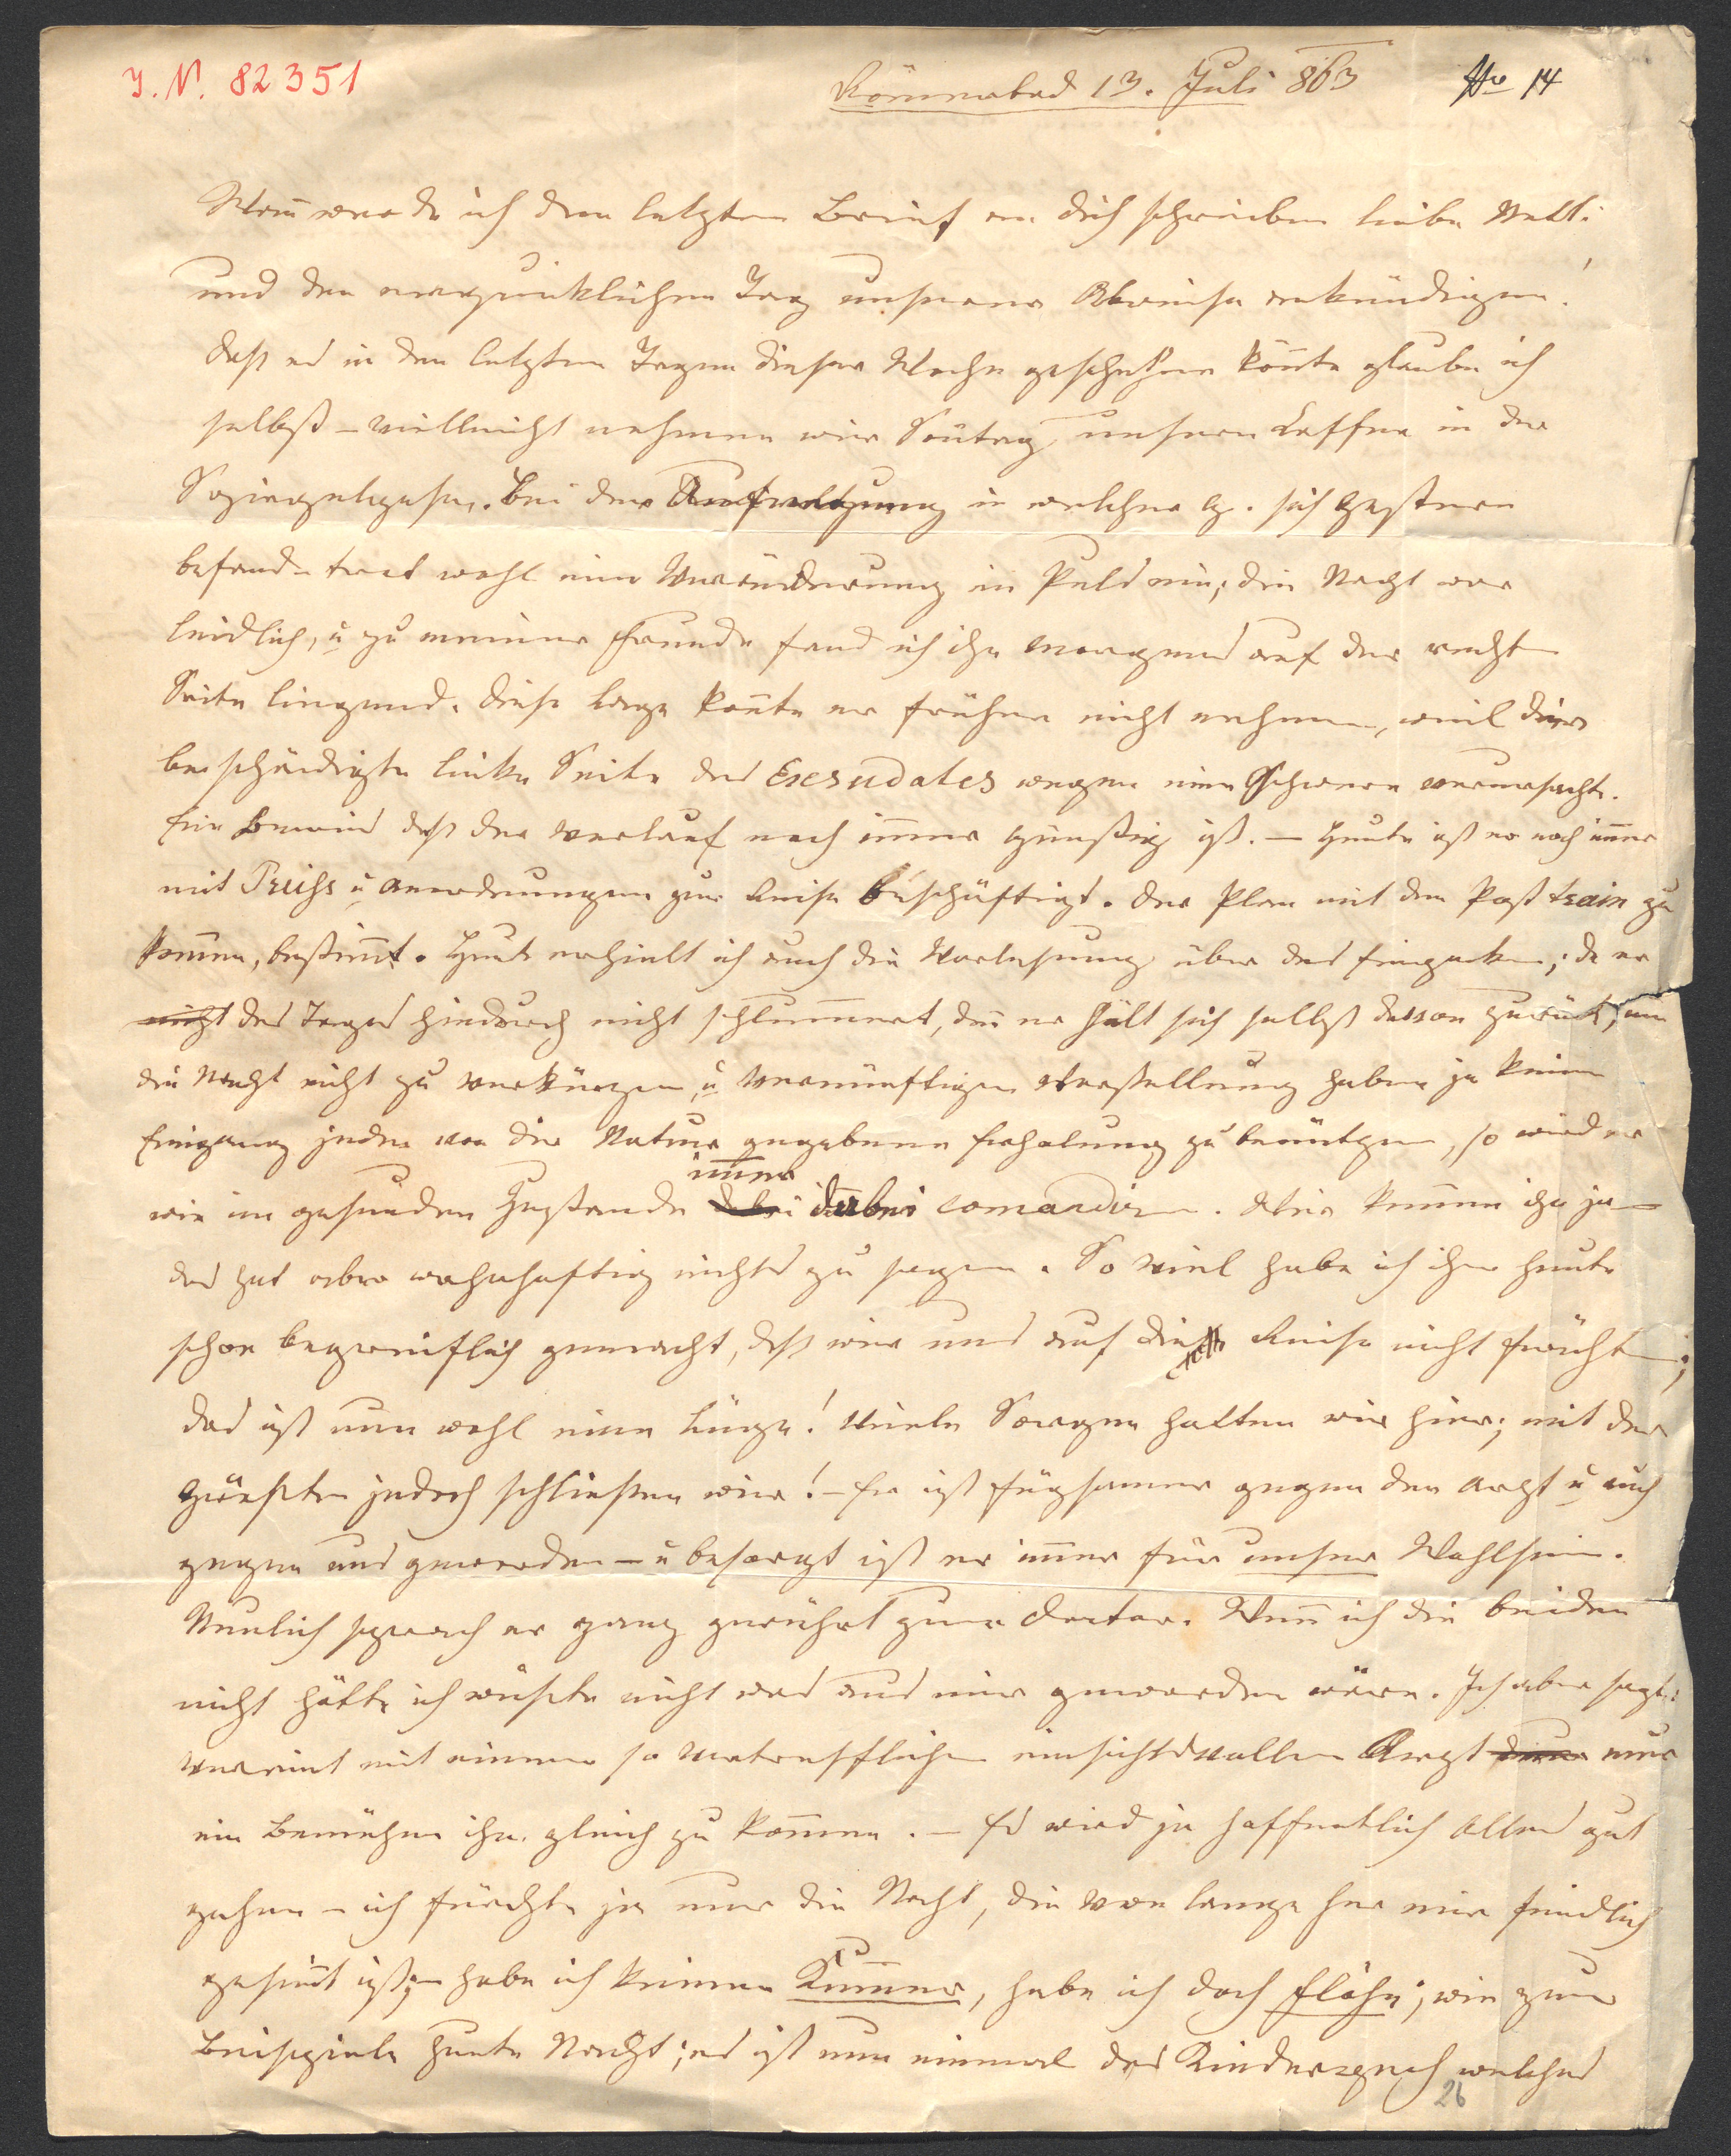 I. N. 82351
Römerbad 13. Juli 863 No 14
Wann werde ich den letzten Brief an dich schreiben liebe Netti
und den erquicklichen Tag unserer Abreise ankündigen!
daß es in den letzten Tagen dieser Woche geschehen könnte glaube ich
selbst – vielleicht nehmen wir Sontag unseren Caffee in der
Spiegelgasse. Bei der Aufregung in welcher G. sich gestern
befand – trat wohl eine Veränderung im Puls ein; die Nacht war
leidlich, u zu meiner Freude fand ich ihn morgens auf der rechten
Seite liegend. diese Lage konnte er früher nicht nehmen, weil die
beschädigte linke Seite des Exsudates wegen eine Schwere verursacht.
Ein Beweis daß der Verlauf noch immer günstig ist. – Heute ist er noch immer
mit u Anordnungen zur Reise beschäftigt. der Plan mit dem Post train zu
kommen, bestimmt. Heute erhielt ich auch die Vorlesung über das Einpacken; da er
nicht des Tages hindurch nicht schlummert, den er hält sich selbst davon zurück, um
die Nacht nicht zu verkürzen, u vernünftigen Vorstellung haben ja keinen
Eingang jeden von der Natur gegebene Erholung zu benützen, so wird er
immer
wie im gesunden Zustande dabei dabei comandiren. Wir kennen ihn ja –
das hat aber wahrhaftig nichts zu sagen. So viel habe ich ihm heute
schon begreiflich gemacht, daß wir uns auf die Reise nicht fürchten;
das ist nun wohl eine Lüge! Viele Sorgen hatten wir hier; mit der
größten jedoch schließen wir! – Er ist fügsamer gegen den Arzt u auch
gegen uns geworden – u besorgt ist er immer für unser Wohlsein.
Neulich sprach er ganz gerührt zum Doctor. Wenn ich die beiden
nicht hätte ich wüßte nicht was aus mir geworden wäre. Ich aber sagte:
vereint mit einem so vortrefflichen einsichtsvollen Arzt nur
ein Bemühen ihn gleich zu kommen. – Es wird ja hoffentlich Alles gut
gehen – ich fürchte ja nur die Nacht, die von lange her mir feindlich
gesinnt ist; habe ich keinen Kummer, habe ich doch Flöhe; wie zum
Beispiele heute Nacht; es ist nun einmal das Kinderpech welches
26